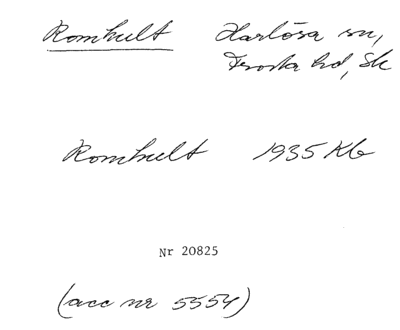 Romhult Harlösa sn,
Frosta hd, Sk
Romhult 1935 Kb
Nr 20825
(acc nr 5554)